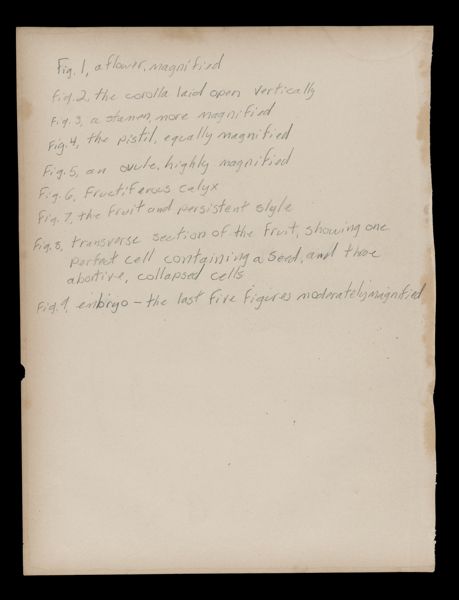 Fig. 1, a flower, magnified
Fig. 2, the corolla laid open vertically
Fig. 3, a stamen, more magnified
Fig. 4, the pistil, equally magnified
Fig. 5, an ovule, highly magnified
Fig. 6, Fructiferous calyx
Fig. 7, the fruit and persistent style
Fig. 8, transverse section of the fruit, showing one
perfect cell containing a seed, and three
abortive, collapsed cells
Fig. 9, embryo – the last five figures moderately magnified